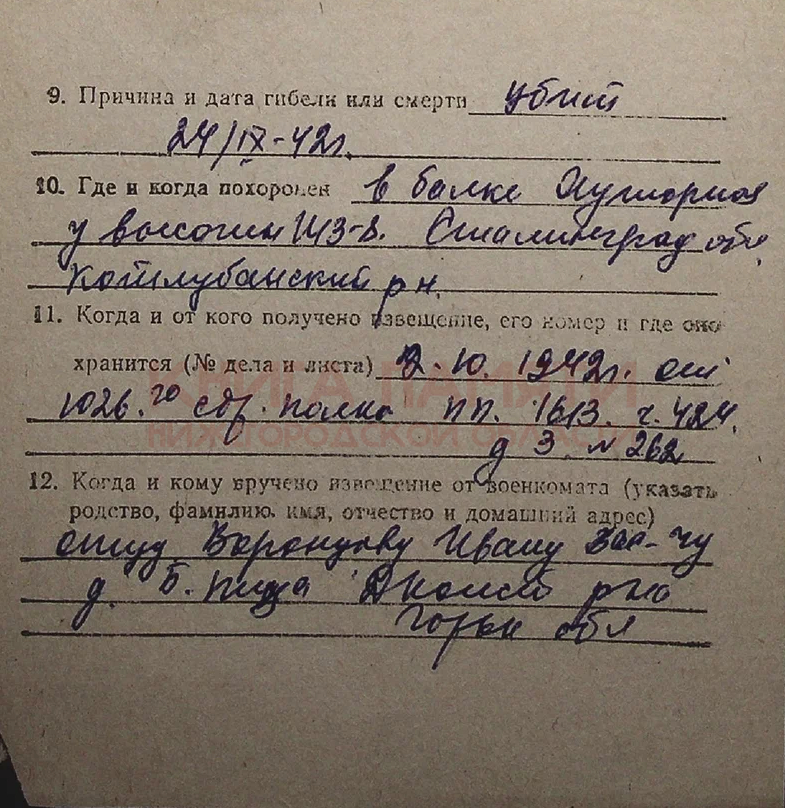 9. Причина и дата гибели или смерти убит
24/IX-42г.
10. Где и когда похоронен в балке Хуторная
у высоты 113-8. Сталинград обл
Котлубанский р н.
11. Когда и от кого получено извещение, его номер и где оно
хранится (№ дела и листа) 2. 10. 1942г. от
1026.го стр. полка пп. 1613. ч. 424.
д 3 n 262
КНИГА ПАМЯТИ
НИЖЕГОРОДСКОЙ ОБЛАСТИ
12. Когда и кому вручено извещение от военкомата (указать
родство, фамилию, имя, отчество и домашний адрес)
отцу Воронцову Ивану Вас-чу
д. Б. Пица Д Конст р на
Горьк обл